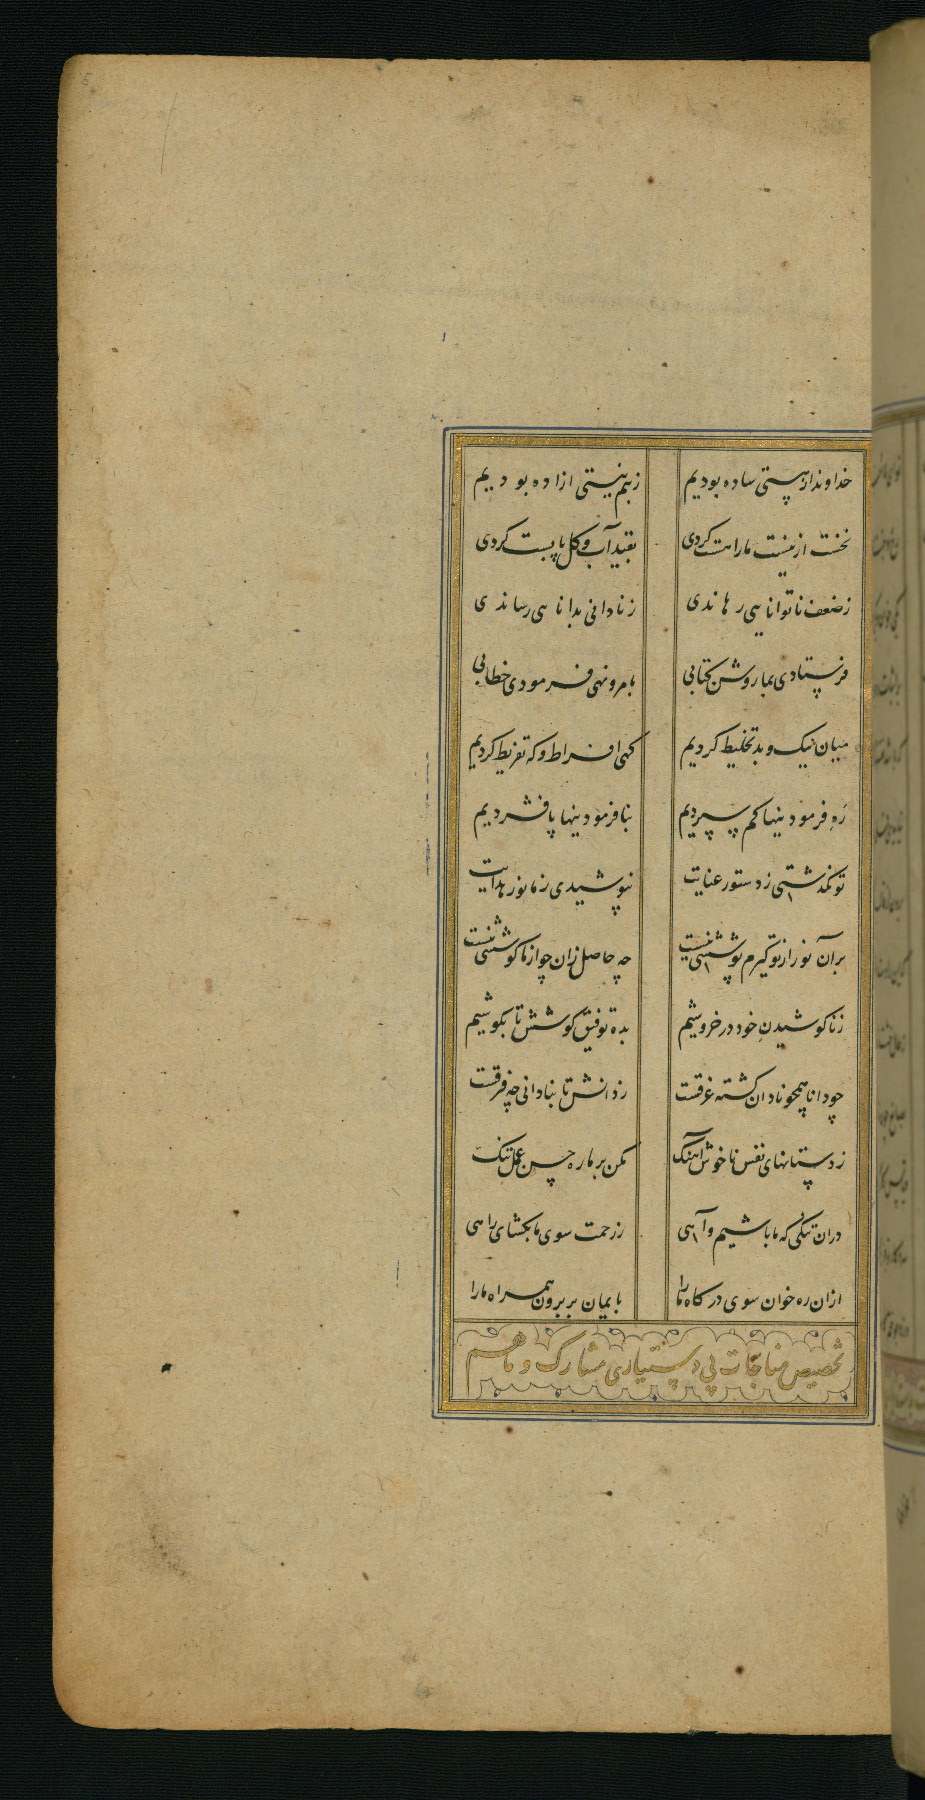 خداوندا ز هستی ساده بودیم ز بیم نیستی ازاده بودیم
نخست از نیست ما را هست کردی بقید آب و گل پابست کردی
ز ضعف ناتوانایی رهاندی ز نادانی بدانایی رساندی
فرستادی بما روشن کتابی بامر و نهی فرمودی خطابی
میان نیک و بد تخلیط کردیم کهی افراط و که تفریط کردیم
ره فرمودنیها کم سپردیم بنافرمودنیها پا فشردیم
تو نگذشتی ز دستور عنایت نپوشیدی ز ما نور هدایت
بر آن نور از تو گیرم پوششی نیست چه حاصل زان چو از ما کوششی نیست
ز ناکوشیدن خود در خروشیم بده توفیق کوشش تا بکوشیم
چو دانا همچو نادان گشته غرقست ز دانش تا بنادانی چه فرقست
ز دستانهای نفس ناخوش آهنگ مکن بر ما ره حسن عمل تنگ
در ان تنگی که ما باشیم و آهی ز رحمت سوی ما بگشای راهی
از ان ره خوان سوی درگاه ما را بایمان بر برون همراه ما را
تخصیص مناجات بی دستیاری مشارک و مساهم